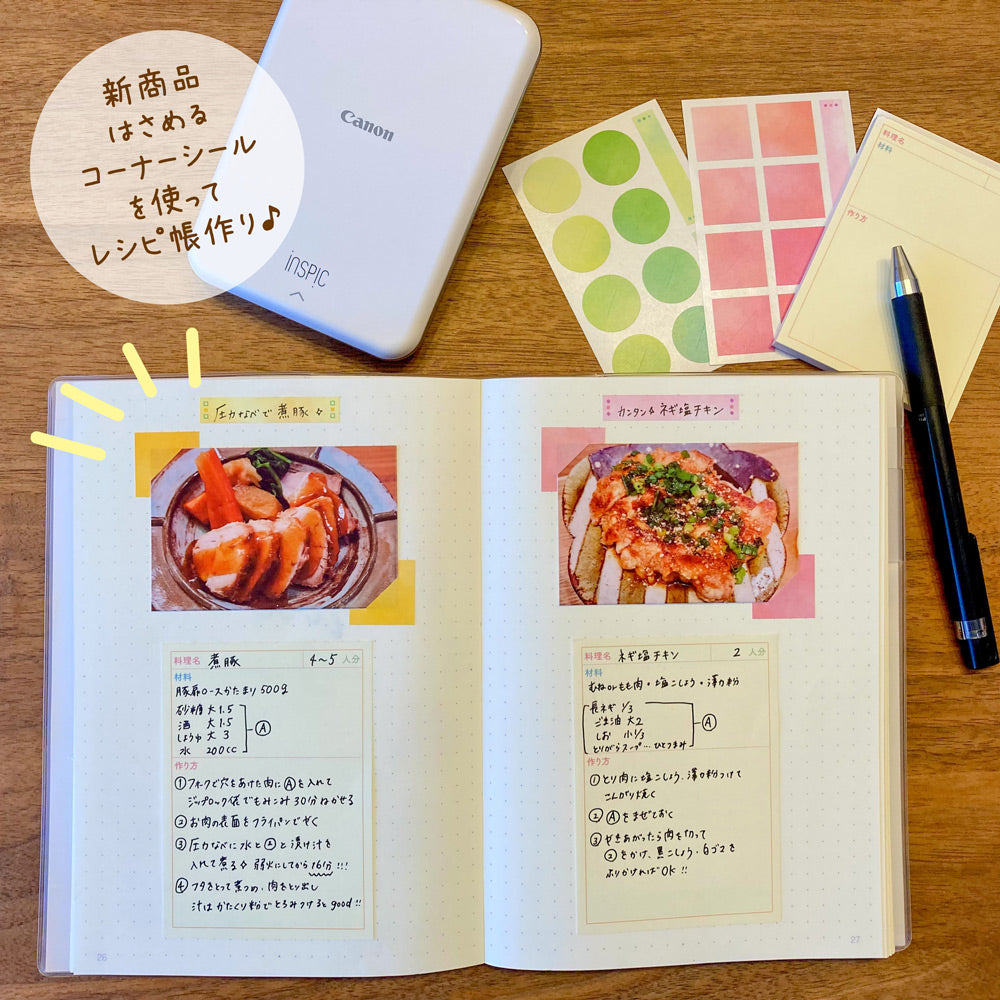 新商品
はさめる
コーナーシール
を使って
レシピ帳作り♪
Canon
iNSPiC
料理名
材料
作り方
圧力なべで煮豚
カンタン ネギ塩チキン
料理名 煮豚 4〜5 人分
材料
豚肩ロースかたまり 500g
砂糖 大1.5
酒 大1.5
しょうゆ 大3
Ⓐ
水 200cc
作り方
① フォークで穴をあけた肉にⒶを入れて
ジップロック袋でもみこみ30分ねかせる
② お肉の表面をフライパンでやく
③ 圧力なべに水と②と漬け汁を
入れて煮る 弱火にしてから16分!!!
④ フタをとって煮つめ、肉をとり出し
汁はかたくり粉でとろみつけるとgood!!
26
料理名 ネギ塩チキン 2 人分
材料
むねorもも肉・塩こしょう・薄力粉
長ネギ 1/3
ごま油 大2
Ⓐ
しお 小1/3
とりがらスープ…ひとつまみ
作り方
① とり肉に塩こしょう、薄力粉つけて
こんがり焼く
② Ⓐをまぜておく
③ やきあがったら肉を切って
②をかけ、黒こしょう・白ゴマを
ふりかければOK!!
27